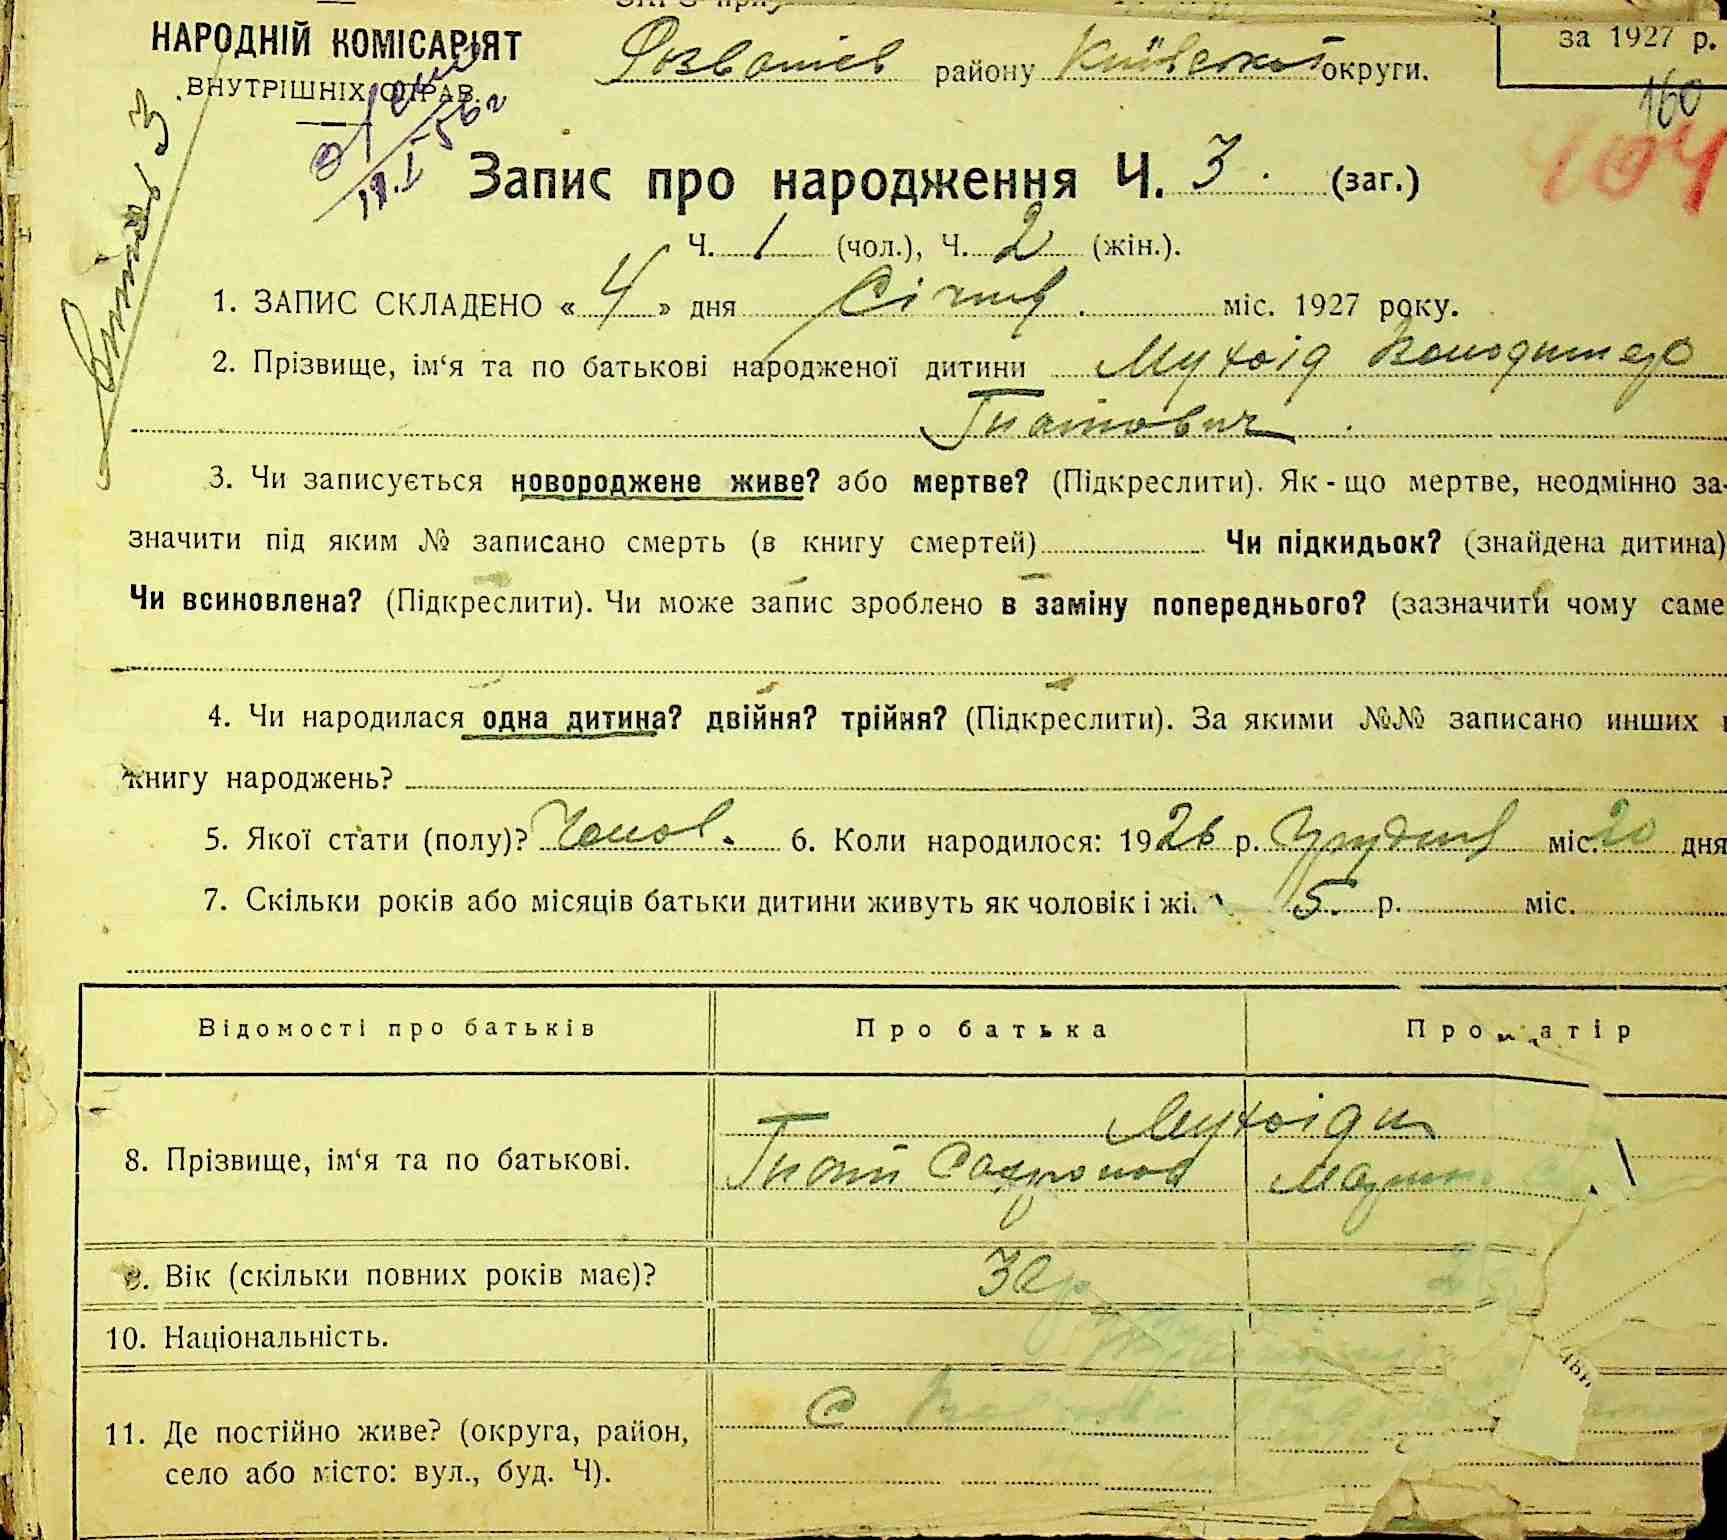 НАРОДНІЙ КОМІСАРІЯТ
ВНУТРІШНІХ СПРАВ.
Розваж району Київської округи.
за 1927 р.
160
404
Запис про народження Ч. 3. (заг.)
Ч. 1 (чол.), Ч. 2 (жін.).
1. ЗАПИС СКЛАДЕНО «4» дня Січня міс. 1927 року.
2. Прізвище, ім‘я та по батькові народженої дитини Мухоїд Володимер
Гнатович.
3. Чи записується новороджене живе? або мертве? (Підкреслити). Як-що мертве, неодмінно за-
значити під яким № записано смерть (в книгу смертей) Чи підкидьок? (знайдена дитина)
Чи всиновлена? (Підкреслити). Чи може запис зроблено в заміну попереднього? (зазначити чому саме
4. Чи народилася одна дитина? двійня? трійня? (Підкреслити). За якими №№ записано инших
книгу народжень?
5. Якої стати (полу)? Чолов. 6. Коли народилося: 1926 р. Грудня міс. 20 дня
7. Скільки років або місяців батьки дитини живуть як чоловік і жі 5 р. міс.
Відомості про батьків Про батька Про матір
8. Прізвище, ім‘я та по батькові. Мухоїди
Гнат Сафронов
9. Вік (скільки повних років має)?
10. Національність.
11. Де постійно живе? (округа, район, с
село або місто: вул., буд. Ч).